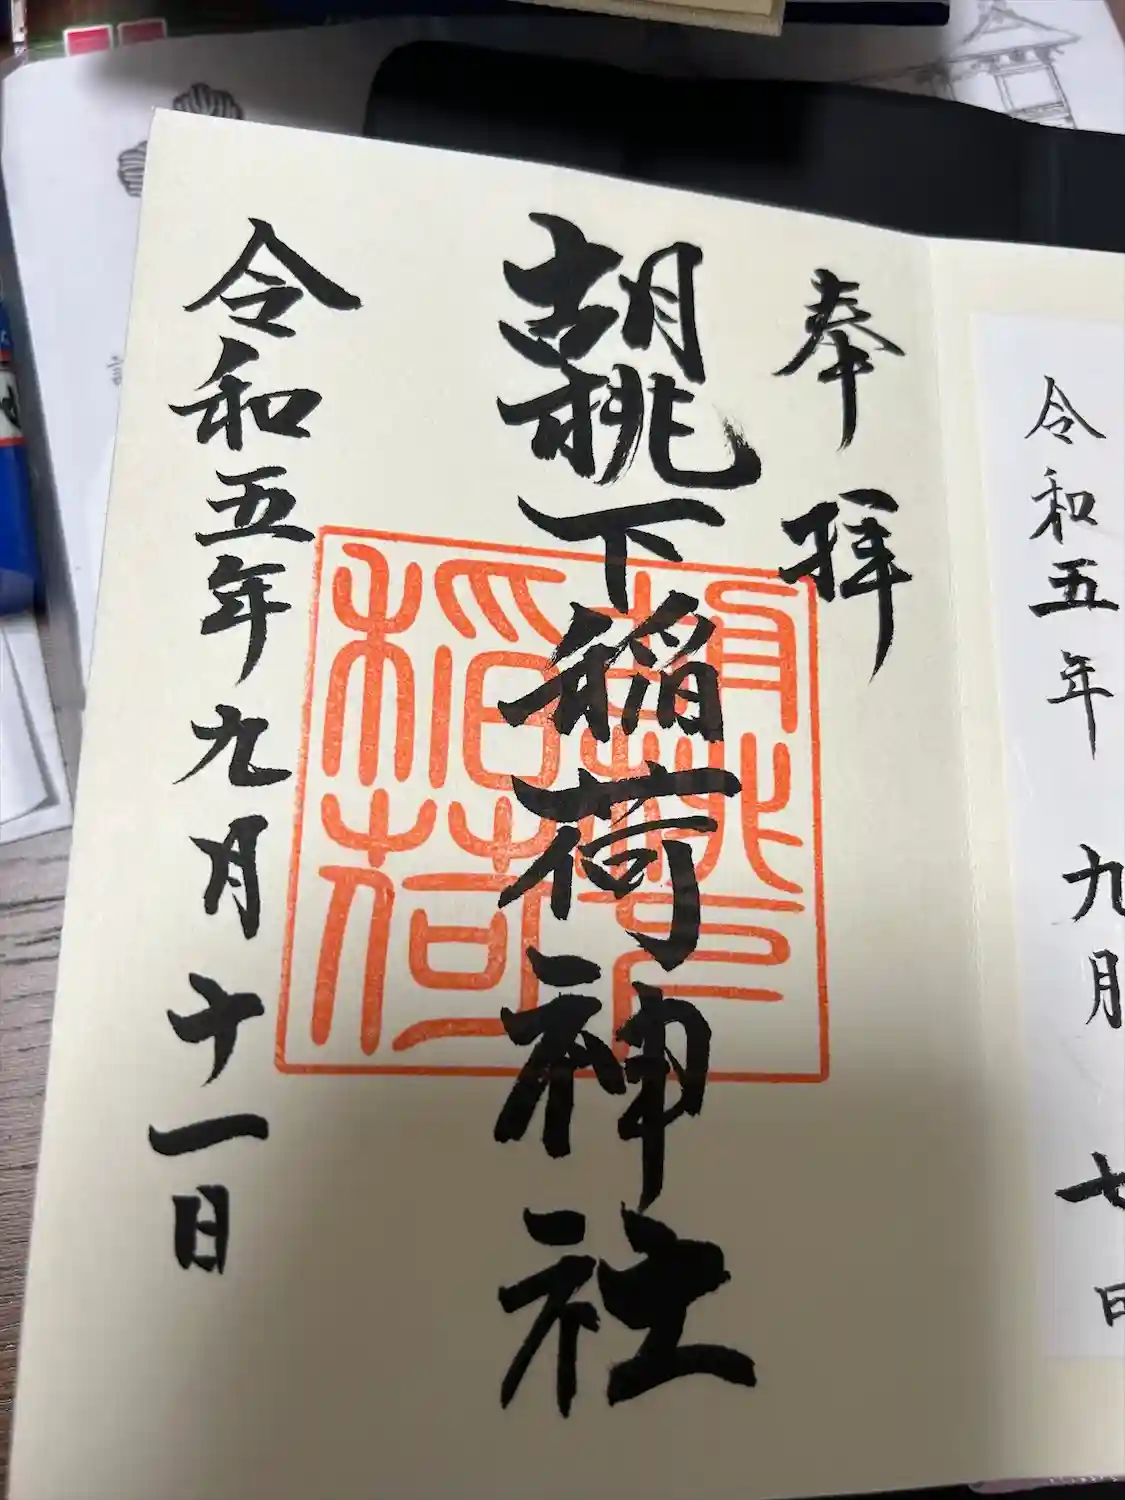 令和五年九月七日
奉拝
胡桃下稲荷神社
胡桃下
稲荷
令和五年九月十一日